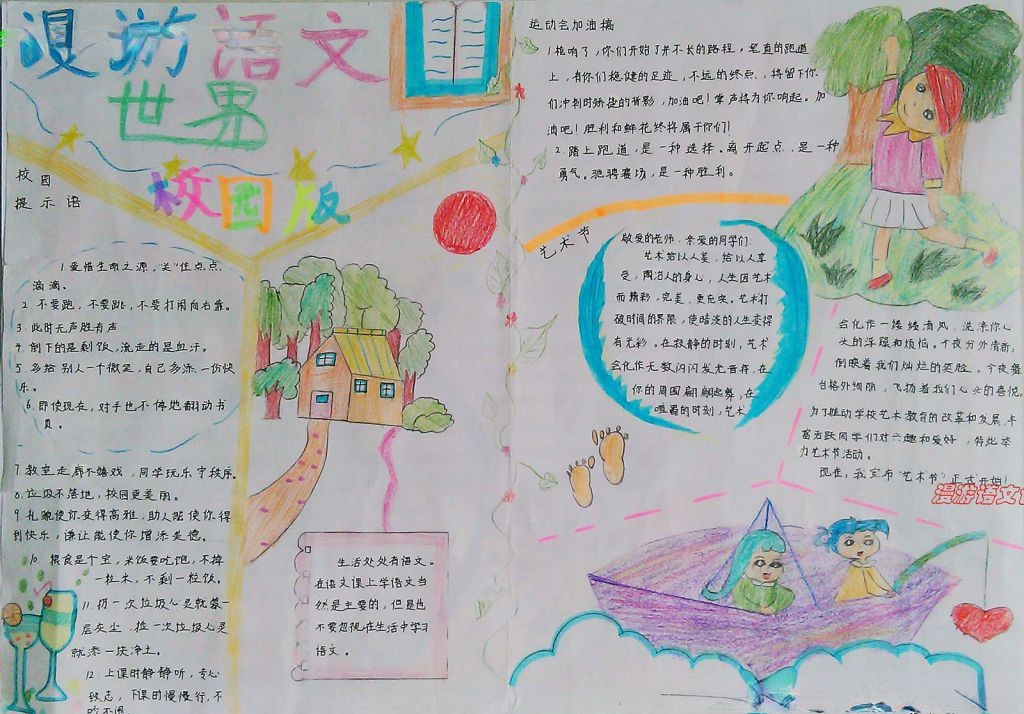 漫游语文
世界
校园版
校园
提示语
1.爱惜生命之源,关"住点点
滴滴。
2.不要跑,不要跳,不要打闹向右靠。
3.此时无声胜有声
4.倒下的是剩饭,流走的是血汗。
5.多给别人一个微笑,自己多添一份快
乐。
6.即使现在,对手也不停地翻动书
页。
7.教室走廊不嬉戏,同学玩乐守秩序。
8.垃圾不落地,校园更美丽。
9.礼貌使你变得高雅,助人能使你得
到快乐,谦让能使你增添美德。
10.粮食是个宝,米饭要吃饱,不掉
一粒米,不剩一粒饭。
11.扔一次垃圾心灵就蒙一
层灰尘,捡一次垃圾心灵
就添一块净土。
12.上课时静静听,专心
致志,下课时慢慢行,不
吵不闹
生活处处有语文。
在语文课上学语文当
然是主要的,但是也
不要忽视在生活中学习
语文。
运动会加油搞
1.枪响了,你们开始了并不长的路程,笔直的跑道
上,有你们稳健的足迹,不远的终点,将留下你
们冲刺时矫捷的背影,加油吧!掌声将为你响起。加
油吧!胜利和鲜花终将属于你们!
2.踏上跑道,是一种选择。离开起点,是一种
勇气。驰骋赛场,是一种胜利。
艺术节
敬爱的老师,亲爱的同学们:
艺术给以人美,给以人享
受,陶冶人的身心,人生因艺术
而精彩,完美,更充实。艺术打
破时间的界限,使暗淡的人生变得
有光彩。在寂静的时刻,艺术
会化作无数闪闪发光音符,在
你的周围翩翩起舞,在
喧嚣的时刻,艺术
会化作一缕缕清风,洗涤你心
头的浮躁和烦恼。今夜分外清新,
倒映着我们灿烂的笑脸。今夜舞
台格外绚丽,飞扬着我们心头的喜悦
为了推动学校艺术教育的改革和发展,丰
富活跃同学们对兴趣和爱好,特此举
力艺术节活动。
现在,我宣布"艺术节"正式开始!
漫游语文